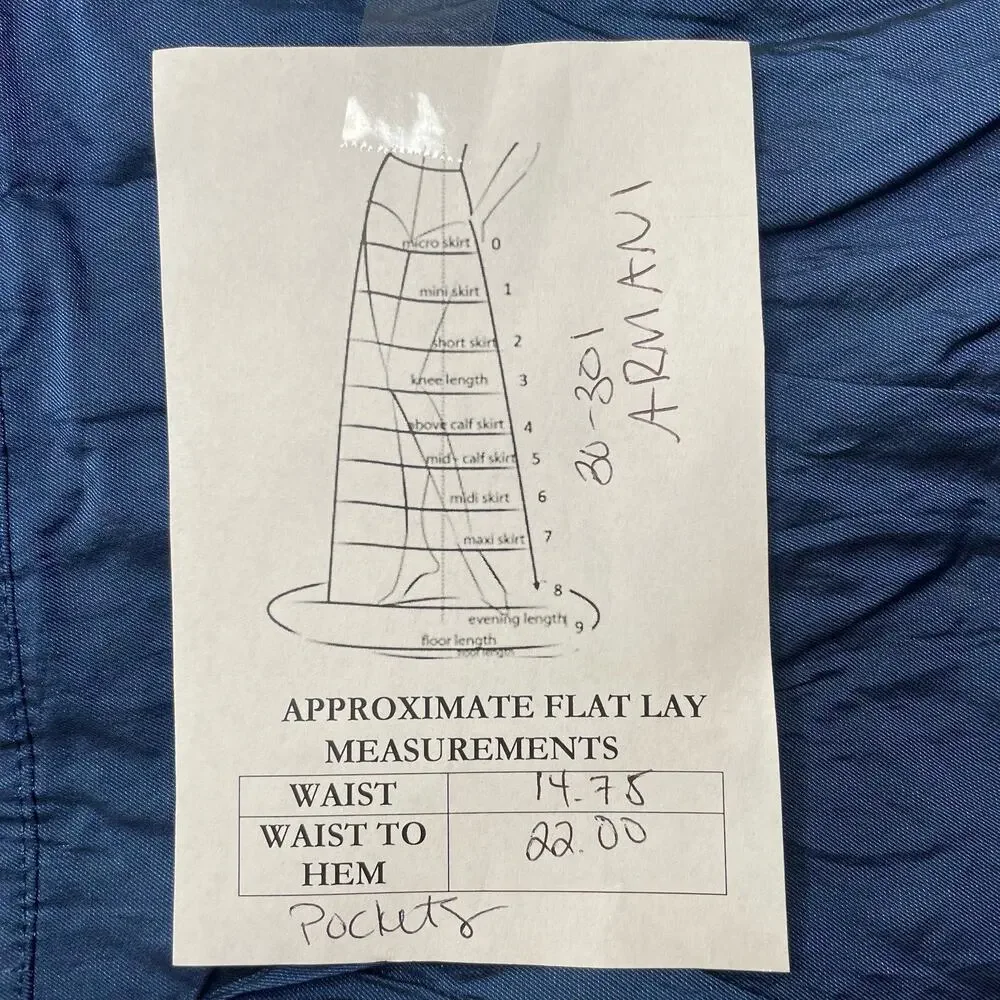 micro skirt 0
mini skirt 1
short skirt 2
knee length 3
above calf skirt 4
mid - calf skirt 5
midi skirt 6
maxi skirt 7
8
evening length 9
floor length
floor length
30-301
ARMANI
APPROXIMATE FLAT LAY
MEASUREMENTS
WAIST 14.75
WAIST TO 22.00
HEM
Pockets